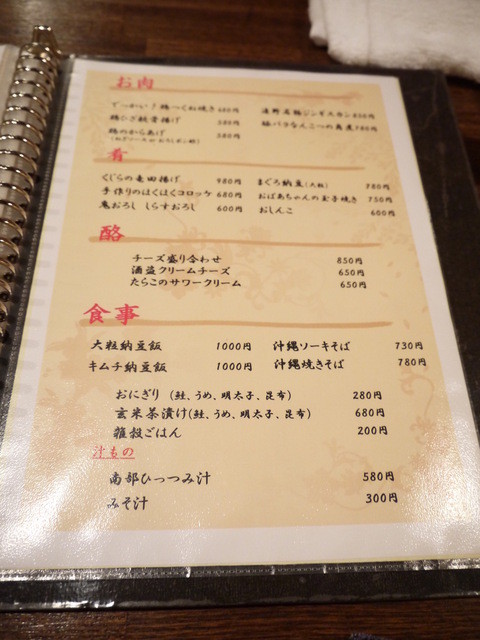 お肉
でーかい！鶏つくね焼き 480円 遠野名物ジンギスカン 850円
鶏ひざ軟骨揚げ 580円 豚バラなんこつの角煮 780円
鶏のからあげ 580円
(ねぎソース or おろしポン酢)
肴
くじらの竜田揚げ 980円 まぐろ納豆(大粒) 780円
手作りのほくほくコロッケ 680円 おばあちゃんの玉子焼き 750円
鬼おろし しらすおろし 600円 おしんこ 600円
酪
チーズ盛り合わせ 850円
酒盗クリームチーズ 650円
たらこのサワークリーム 650円
食事
大粒納豆飯 1000円 沖縄ソーキそば 730円
キムチ納豆飯 1000円 沖縄焼きそば 780円
おにぎり (鮭、うめ、明太子、昆布) 280円
玄米茶漬け(鮭、うめ、明太子、昆布) 680円
雑穀ごはん 200円
汁もの
南部ひっつみ汁 580円
みそ汁 300円